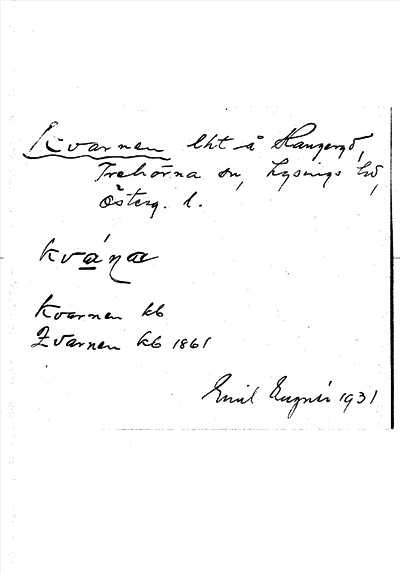 Kvarnen lht å Haugergd,
Trehörna sn, Lysings hd,
Österg. l.
kvána
Kvarnen kb
Qvarnen kb 1861
Emil 1931